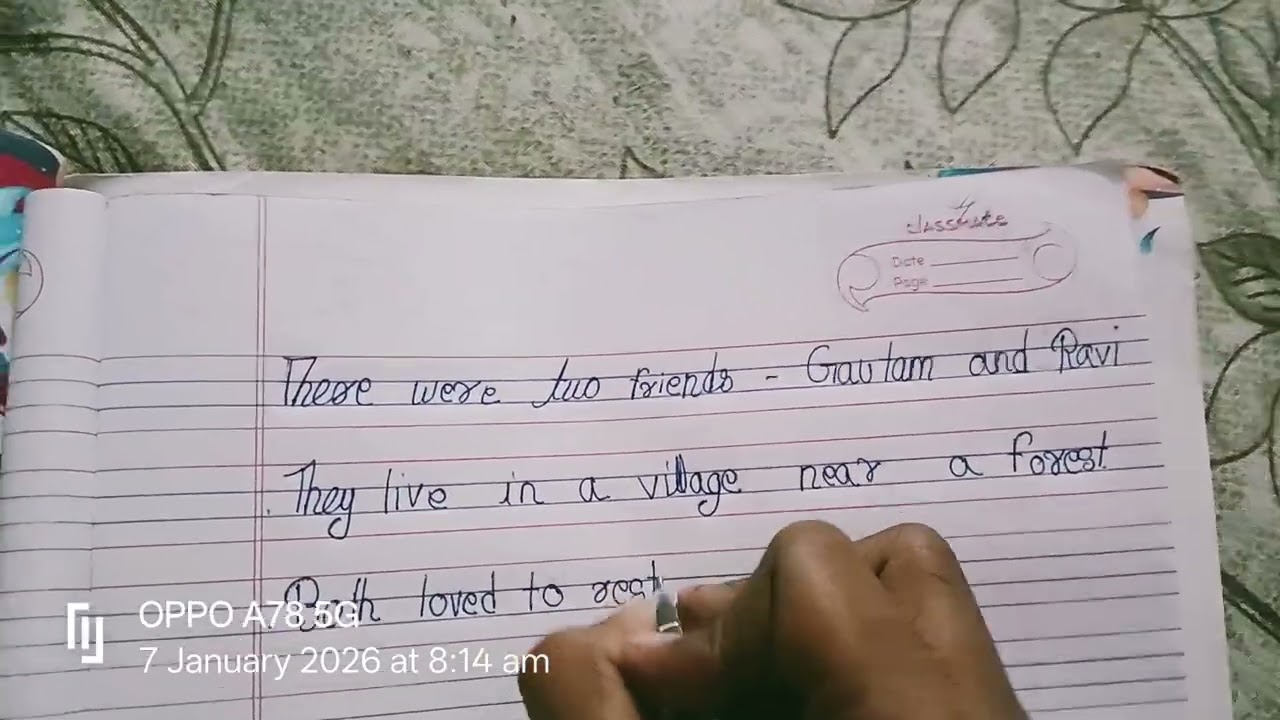 classmate
Date
Page
There were two friends - Gautam and Ravi
They live in a village near a forest.
Both loved to
OPPO A78 5G
7 January 2026 at 8:14 am